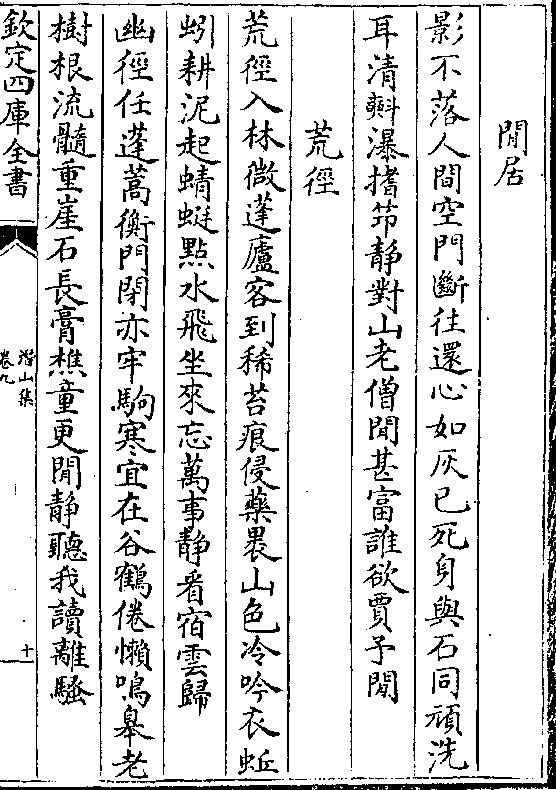 閒居
影不落人間空門斷徃還心如灰已死身與石同頑洗
耳清㪺瀑搘笻静對山老僧閒甚富誰欲賈予閒
荒徑
荒徑入林微蓬廬客到稀苔痕侵藥褁山色冷吟衣蚯
蚓耕泥起蜻蜓點水飛坐來忘萬事静看宿雲歸
幽徑任蓬蒿衡門閉亦牢駒寒宜在谷鶴倦懶鳴臯老
樹根流髓重崖石長膏樵童更閒静聽我讀離騷
欽定四庫全書
潛山集
卷九
十